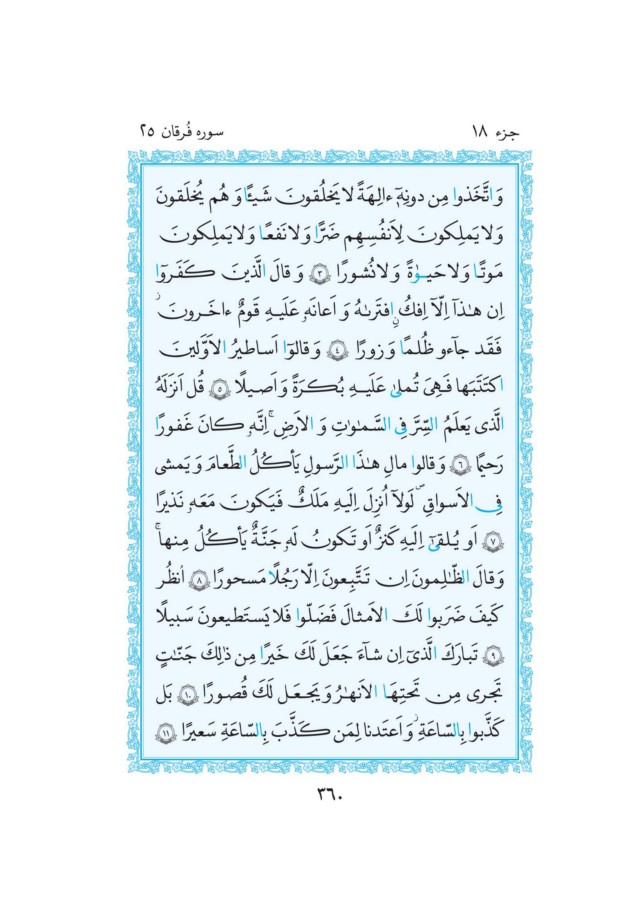 جزء ١٨
سوره فُرقان ٢٥
وَاتَّخَذوا مِن دونِهِٓ ءالِهَةً لا يَخلُقونَ شَيـًٔا وَ هُم يُخلَقونَ
وَلا يَملِكونَ لِاَنفُسِهِم ضَرًّا وَلا نَفعًا وَلا يَملِكونَ
مَوتًا وَلا حَيوٰةً وَلا نُشورًا ٣ وَ قالَ الَّذينَ كَفَروٓا
اِن هٰذآ اِلّآ اِفكٌ افتَرىٰهُ وَ اَعانَهو عَلَيهِ قَومٌ ءاخَرونَ ۖ
فَقَد جآءو ظُلمًا وَ زورًا ٤ وَ قالوٓا اَساطيرُ الاَوَّلينَ
اكتَتَبَها فَهِىَ تُملىٰ عَلَيهِ بُكرَةً وَ اَصيلًا ٥ قُل اَنزَلَهُ
الَّذى يَعلَمُ السِّرَّ فِى السَّمٰوٰتِ وَ الاَرضِ ۚ اِنَّهو كانَ غَفورًا
رَحيمًا ٦ وَ قالوا مالِ هٰذَا الرَّسولِ يَأكُلُ الطَّعامَ وَ يَمشى
فِى الاَسواقِ ۙ لَولآ اُنزِلَ اِلَيهِ مَلَكٌ فَيَكونَ مَعَهو نَذيرًا
٧ اَو يُلقىٰٓ اِلَيهِ كَنزٌ اَو تَكونُ لَهو جَنَّةٌ يَأكُلُ مِنها ۚ
وَقالَ الظّٰلِمونَ اِن تَتَّبِعونَ اِلّا رَجُلًا مَسحورًا ٨ اُنظُر
كَيفَ ضَرَبوا لَكَ الاَمثالَ فَضَلّوا فَلا يَستَطيعونَ سَبيلًا
٩ تَبارَكَ الَّذىٓ اِن شآءَ جَعَلَ لَكَ خَيرًا مِن ذٰلِكَ جَنّٰتٍ
تَجرى مِن تَحتِهَا الاَنهٰرُ وَ يَجعَل لَكَ قُصورًا ١٠ بَل
كَذَّبوا بِالسّاعَةِ ۖ وَ اَعتَدنا لِمَن كَذَّبَ بِالسّاعَةِ سَعيرًا ١١
٣٦٠